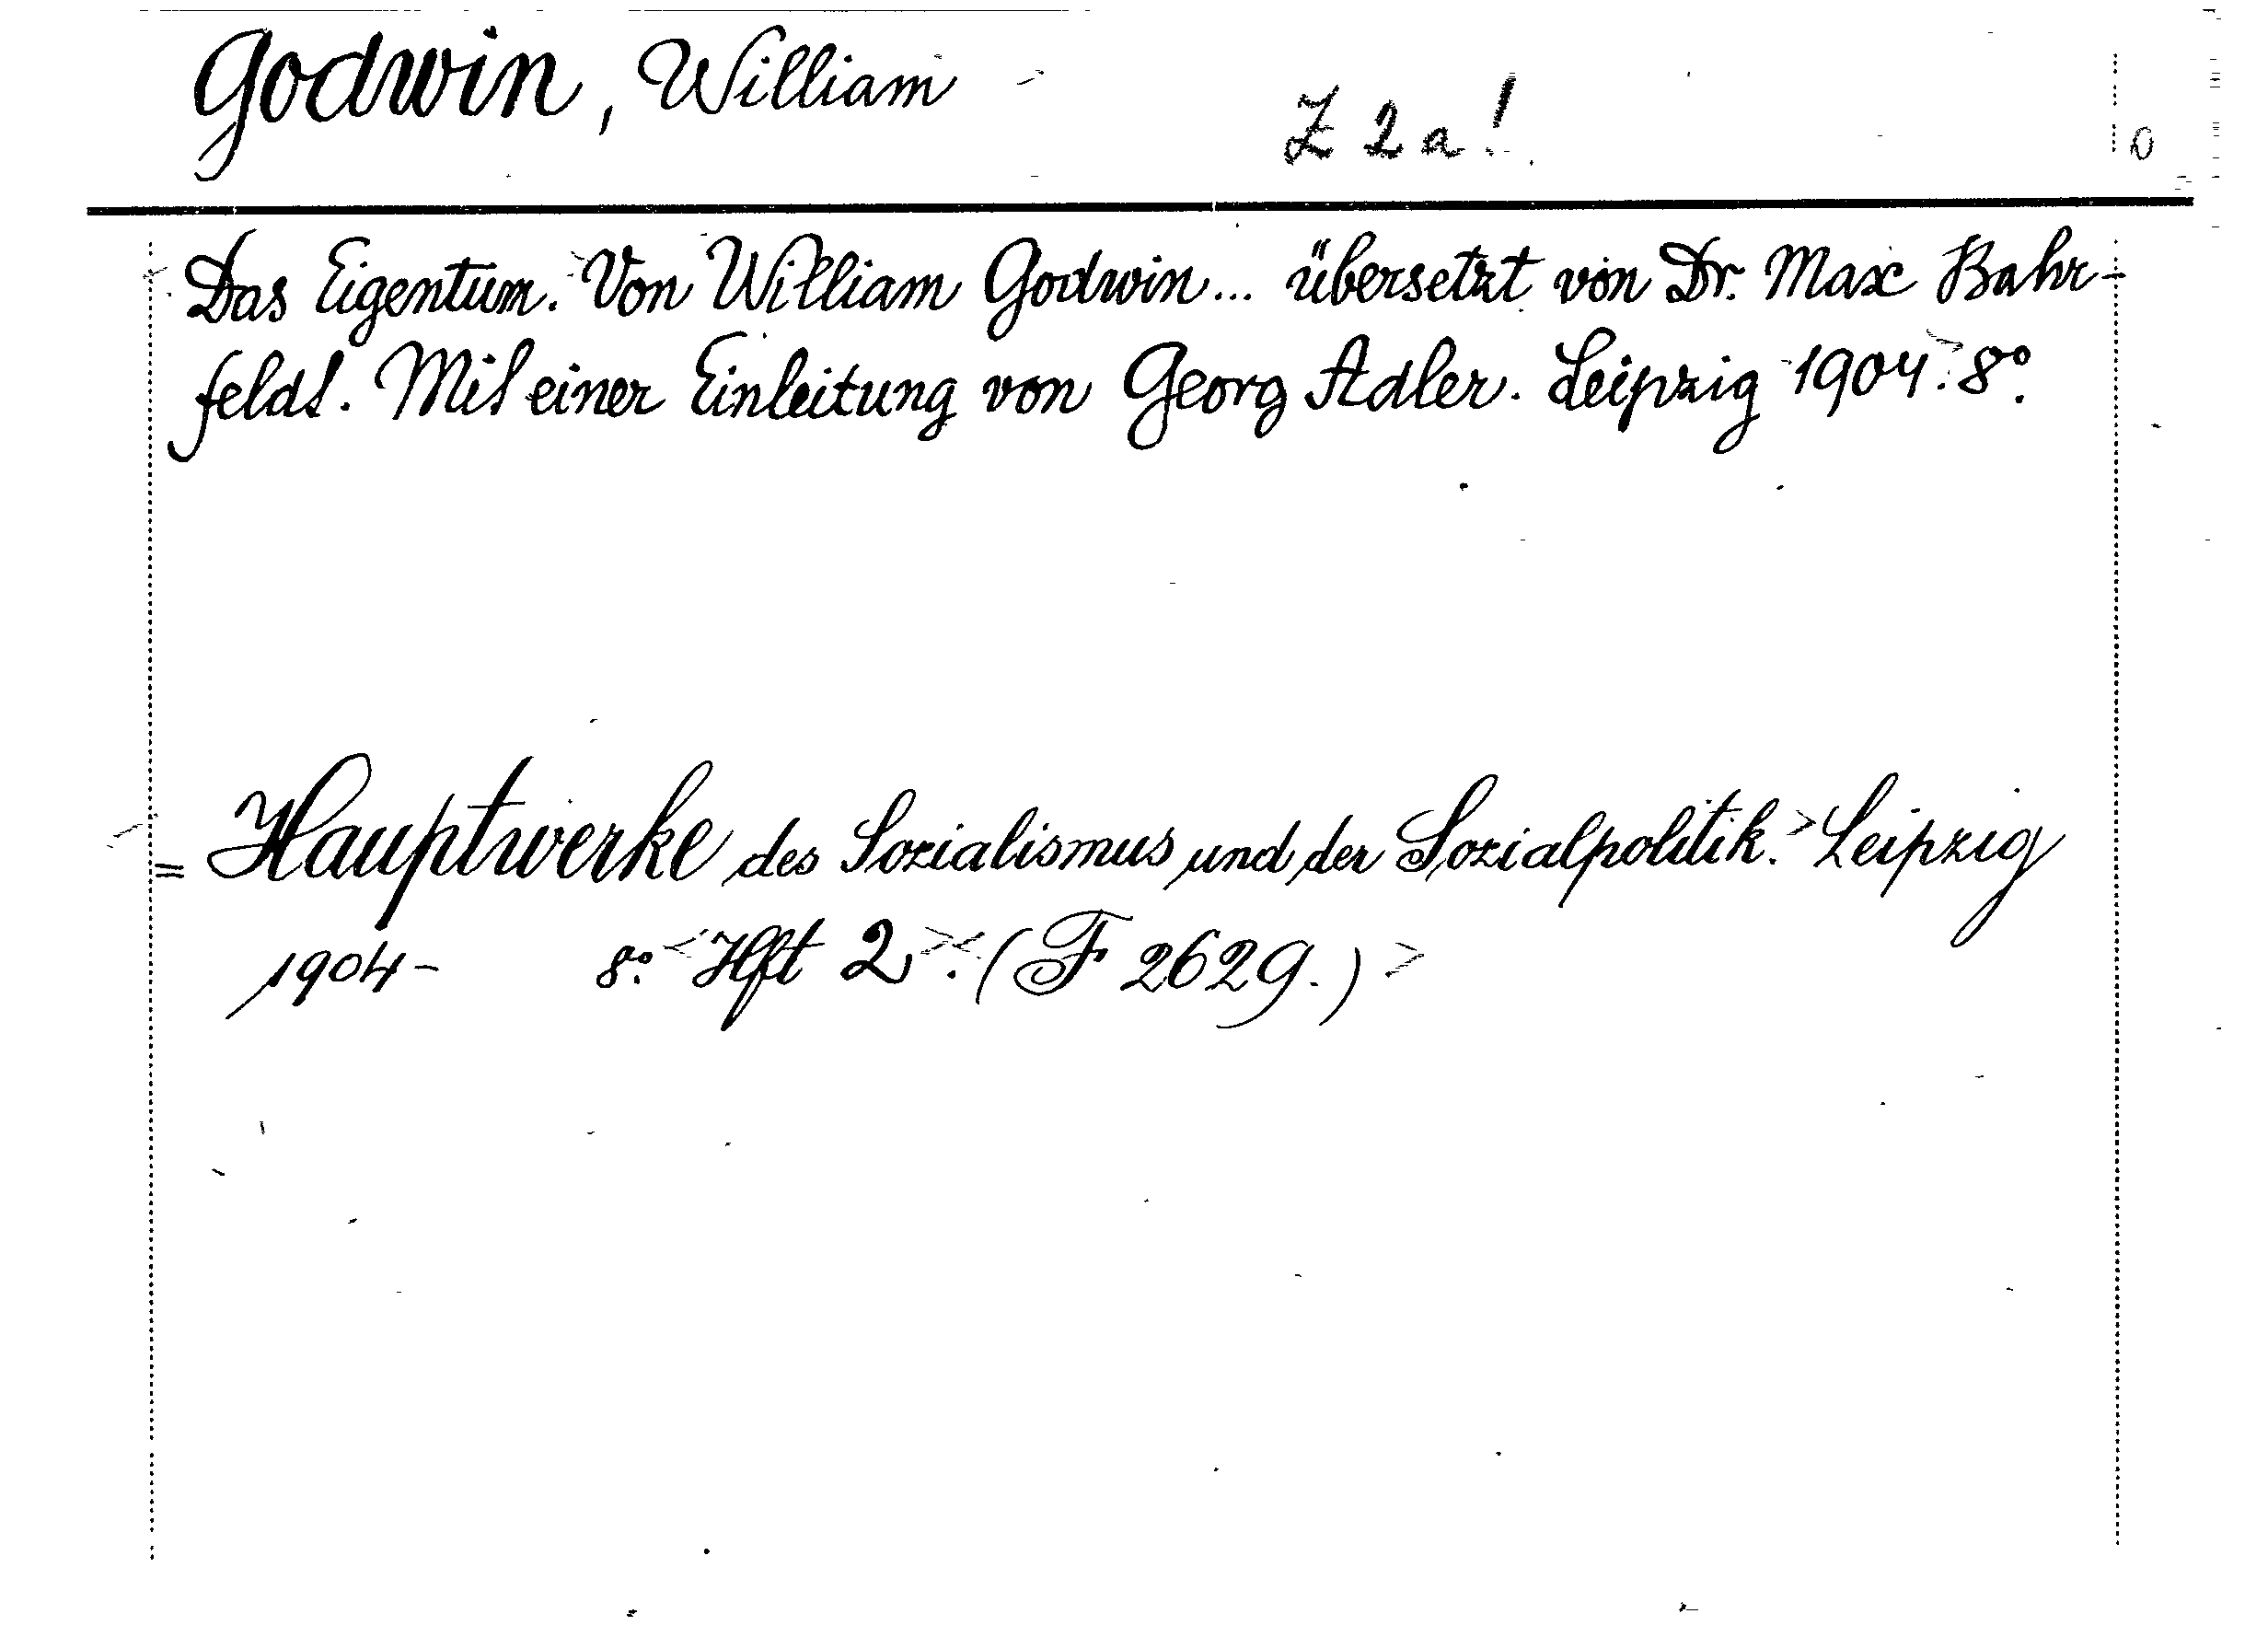 Godwin, William
Z 2 a!
0
Das Eigentum. Von William Godwin... übersetzt von Dr. Max Bahr-
feldt. Mit einer Einleitung von Georg Adler. Leipzig 1904. 8°.
= Hauptwerke des Sozialismus und der Sozialpolitik. Leipzig
1904- 8°. Hft 2. (F 2629.)